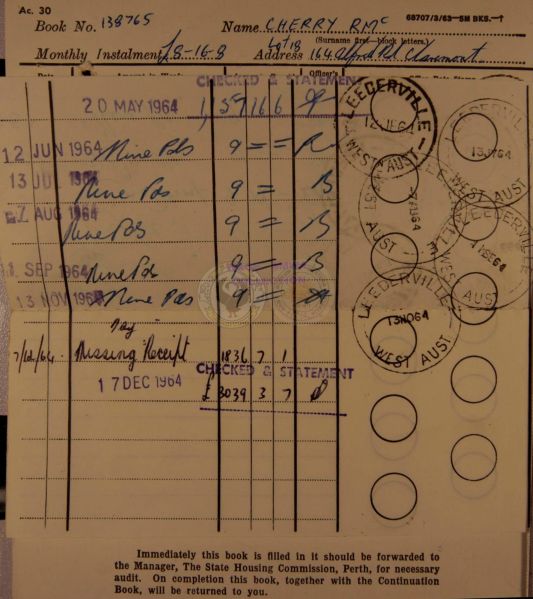 Ac. 30
68707/3/63—5M BKS.—T
Book No. 138765 Name CHERRY R Mc
(Surname first—block letters)
Monthly Instalment £8-16-8 Address Lot 18 164 Alfred Rd Claremont
Officer's
CHECKED & STATEMENT
20 MAY 1964 1,157 16 6
12 JUN 1964 Nine Pds 9 = = R
13 JUL 1964 Nine Pds 9 = B
7 AUG 1964 Nine Pds 9 = B
1 SEP 1964 Nine Pds 9 = B
13 NOV 1964 Nine Pds 9 =
7/12/64. Missing Receipt 1836 7 1
CHECKED & STATEMENT
17 DEC 1964 £3039 3 7
LEEDERVILLE
12JE64
WEST AUST
13JY64
WEST AUST
LEEDERVILLE
WEST AUST
LEEDERVILLE
1SE64
WEST AUST
LEEDERVILLE
13NO64
WEST AUST
Immediately this book is filled in it should be forwarded to
the Manager, The State Housing Commission, Perth, for necessary
audit. On completion this book, together with the Continuation
Book, will be returned to you.